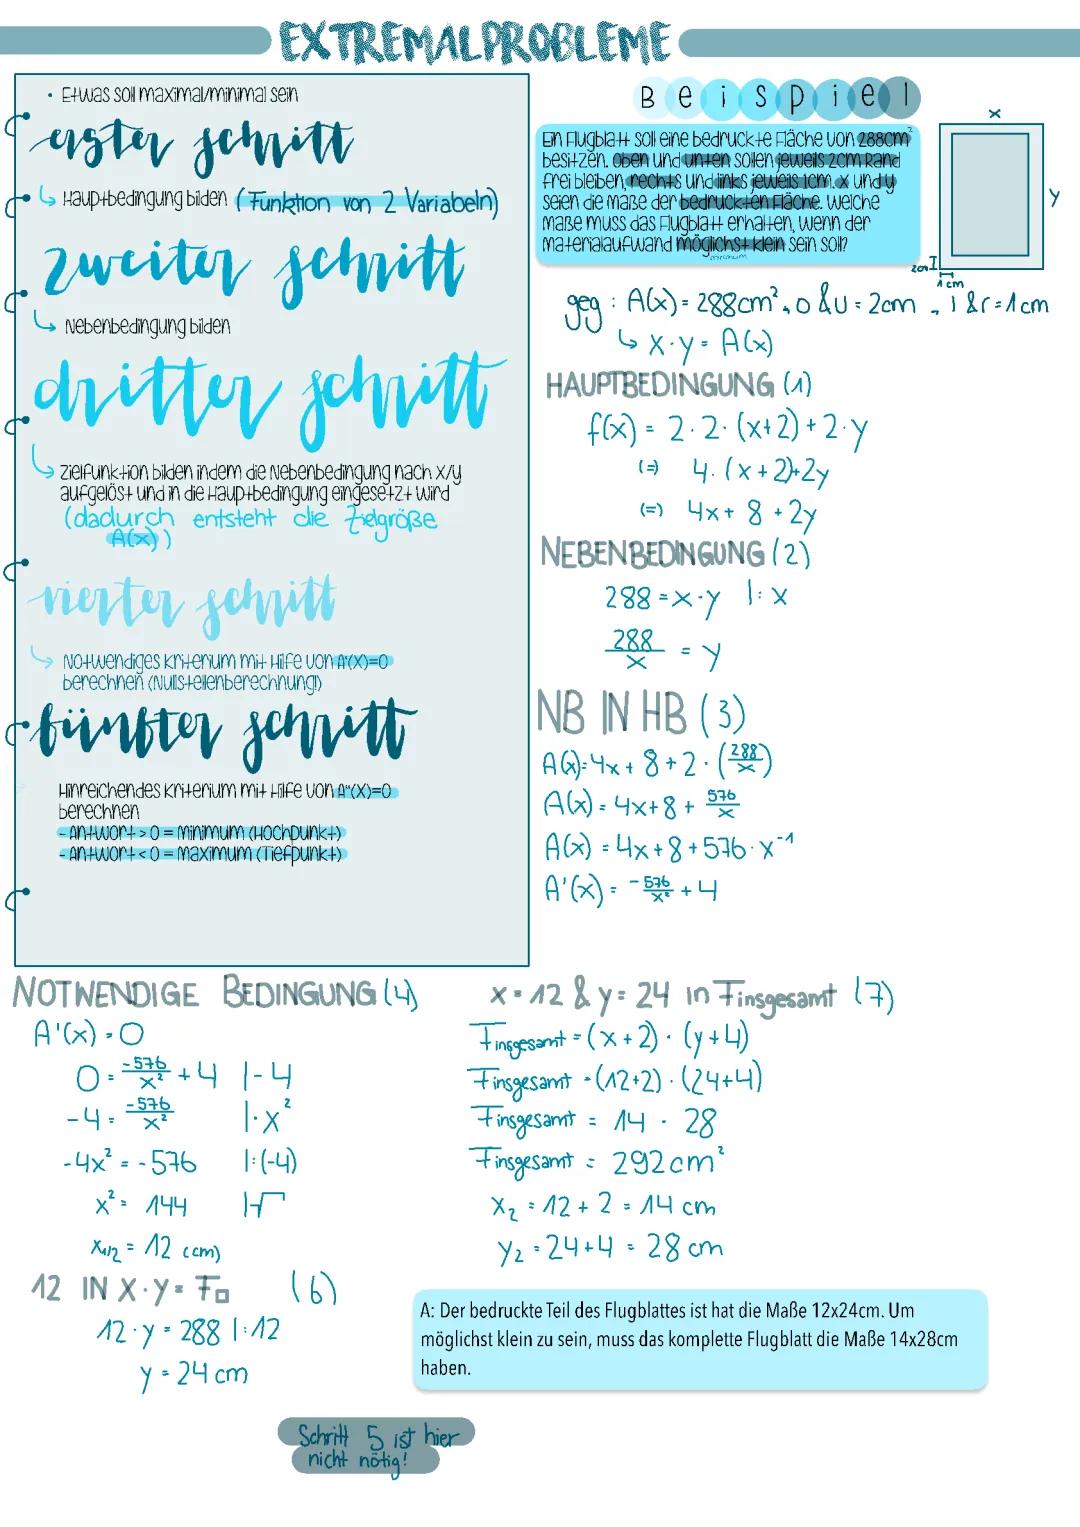 EXTREMALPROBLEME
• Etwas soll maximal/minimal sein
erster schritt
↳ Hauptbedingung bilden (Funktion von 2 Variabeln)
zweiter schritt
↳ Nebenbedingung bilden
dritter schritt
↳ Zielfunktion bilden indem die Nebenbedingung nach x/y
aufgelöst und in die Hauptbedingung eingesetzt wird
(dadurch entsteht die Zielgröße
A(x))
vierter schritt
↳ Notwendiges Kriterium mit Hilfe von A'(X)=0
berechnen (Nullstellenberechnung!)
fünfter schritt
Hinreichendes Kriterium mit Hilfe von A''(X)=0
berechnen
- Antwort > 0 = Minimum (Hochpunkt)
- Antwort < 0 = Maximum (Tiefpunkt)
Beispiel
Ein Flugblatt soll eine bedruckte Fläche von 288cm²
besitzen. Oben und unten sollen jeweils 2cm Rand
frei bleiben, rechts und links jeweils 1cm. x und y
seien die Maße der bedruckten Fläche. Welche
Maße muss das Flugblatt erhalten, wenn der
Materialaufwand möglichst klein sein soll?
minimum
x
y
2cm
1cm
geg: A(x) = 288cm², o & u = 2cm, l & r = 1cm
↳ x·y = A(x)
HAUPTBEDINGUNG (1)
f(x) = 2·2·(x+2)+2·y
(=) 4·(x+2)+2y
(=) 4x+8+2y
NEBENBEDINGUNG (2)
288 = x·y |:x
288/x = y
NB IN HB (3)
A(x)=4x+8+2·(288/x)
A(x) = 4x+8+ 576/x
A(x) = 4x+8+576·x⁻¹
A'(x) = -576/x² + 4
NOTWENDIGE BEDINGUNG (4)
A'(x) = 0
0 = -576/x² + 4 |-4
-4 = -576/x² |·x²
-4x² = -576 |:(-4)
x² = 144 |√
x1/2 = 12 (cm)
12 IN X·Y = F□ (6)
12·y = 288 |:12
y = 24 cm
x = 12 & y = 24 in Finsgesamt (7)
Finsgesamt = (x+2)·(y+4)
Finsgesamt = (12+2)·(24+4)
Finsgesamt = 14 · 28
Finsgesamt = 292cm²
x₂ = 12 + 2 = 14 cm
y₂ = 24+4 = 28 cm
A: Der bedruckte Teil des Flugblattes ist hat die Maße 12x24cm. Um
möglichst klein zu sein, muss das komplette Flugblatt die Maße 14x28cm
haben.
Schritt 5 ist hier
nicht nötig!